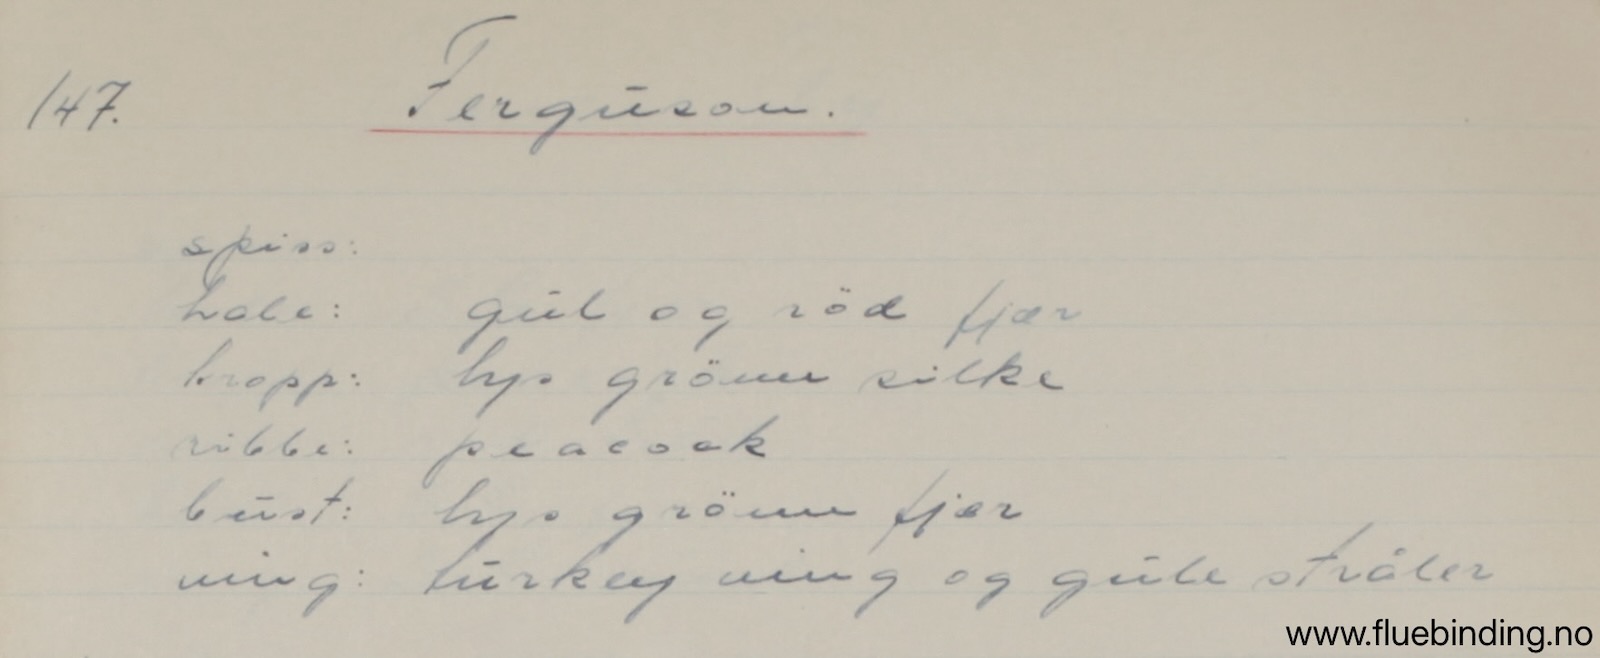 147. Ferguson.
spiss:
hale: gul og röd fjær
kropp: lys grönn silke
ribbe: peacock
bust: lys grönn fjær
ving: turkey ving og gule stråler
www.fluebinding.no